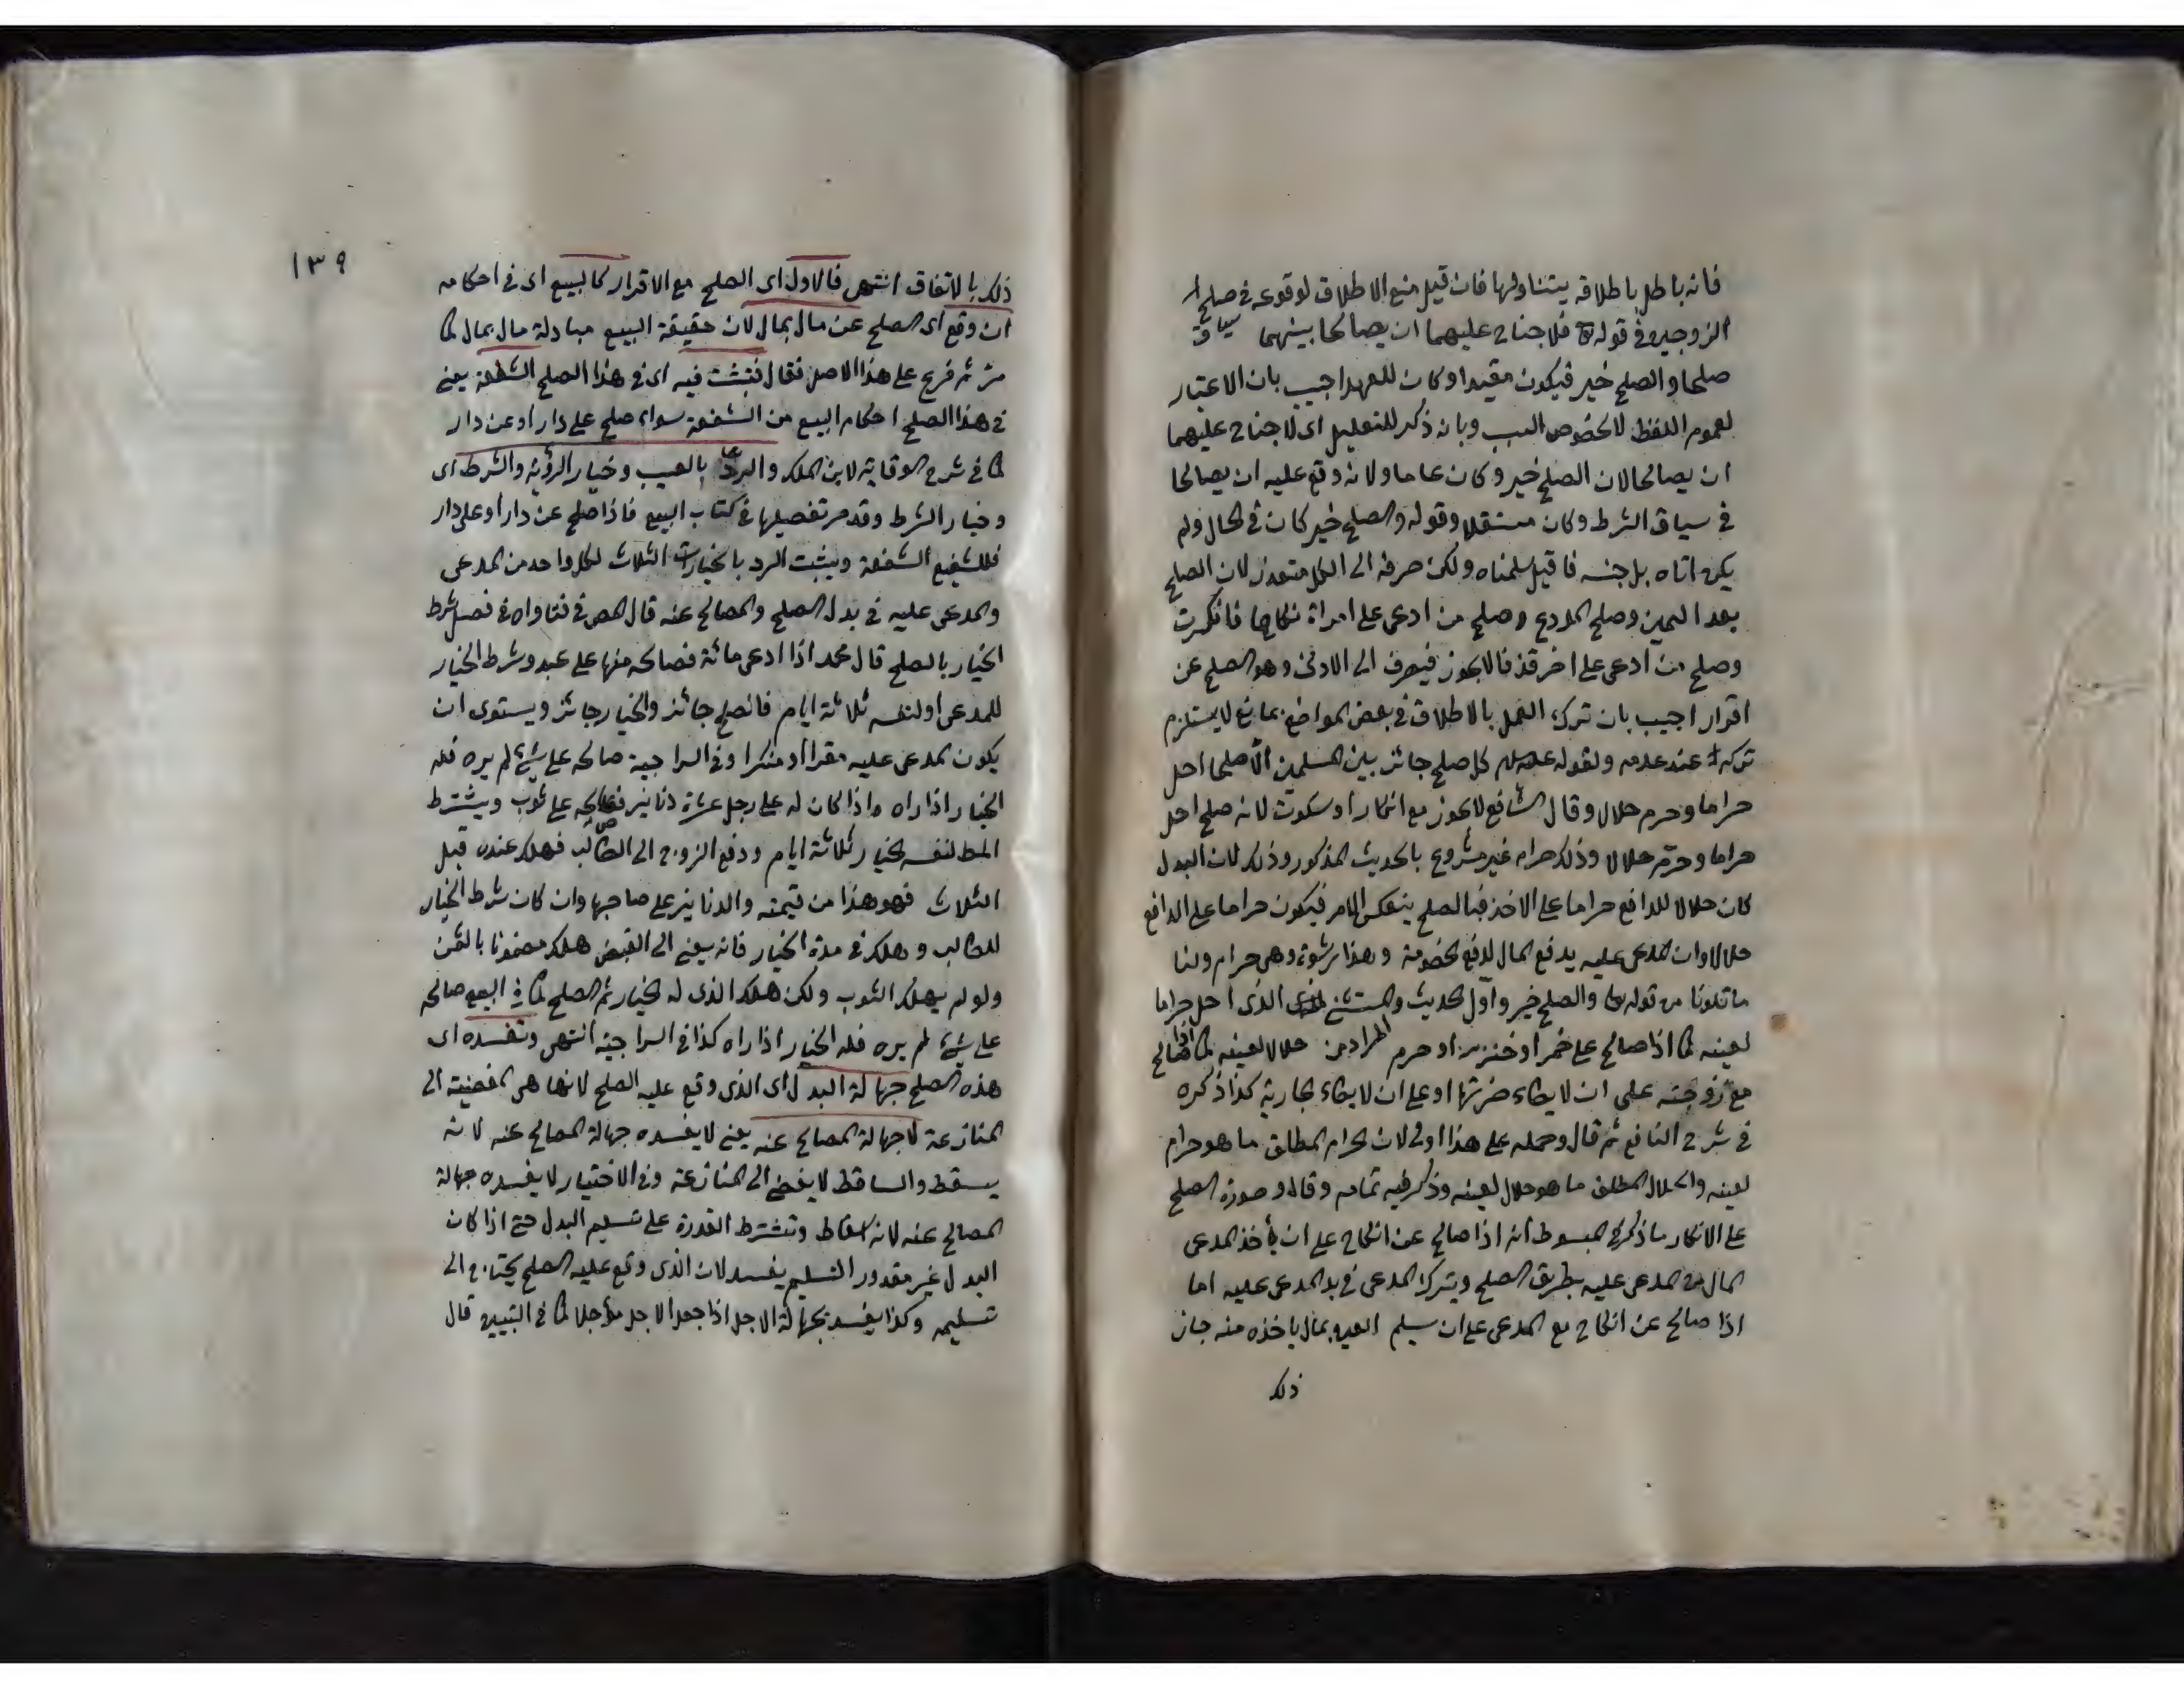 فانه باطل باطلاقه يتناولها فان قيل منع الاطلاق لوقوعه في صلح
الزوجين في قوله تع فلا جناح عليهما ان يصالحا بينهما سياق
صلحا والصلح خير فيكون مقيدا وكان للعهد اجيب بان الاعتبار
لعموم اللفظ لا لخصوص السبب وبانه ذكر للتعليل اى لا جناح عليهما
ان يصالحا لان الصلح خير وكان عاما ولانه وقع عليه ان يصالحا
في سياق الشرط وكان مستقلا وقوله والصلح خير كان في الحال ولم
يكن اياه بل جنسه فان قيل سلمناه ولكن صرفه الى الكل متعذر لان الصلح
بعد اليمين وصلح المودع وصلح من ادعى على امراة نكاحها فانكرت
وصلح من ادعى على اخر قذفا لا يجوز فيصرف الى الادنى وهو الصلح عن
اقرار اجيب بان ترك العمل بالاطلاق في بعض المواضع بمانع لا يستلزم
تركه عند عدمه ولقوله عليه السلام كل صلح جائز بين المسلمين الا صلحا احل
حراما وحرم حلالا وقال الشافعي لا يجوز مع انكار او سكوت لانه صلح احل
حراما وحرم حلالا وذلك حرام غير مشروع بالحديث المذكور وذلك لان البدل
كان حلالا للدافع حراما على الاخذ فبالصلح ينعكس الامر فيكون حراما على الدافع
حلالا وان المدعى عليه يدفع المال لدفع الخصومة وهذا رشوة وهى حرام ولنا
ما تلونا من قوله تعا والصلح خير واول الحديث والمستثنى الذى احل حراما
لعينه كما اذا صالح على خمر او خنزير او حرم المراد من حلالا لعينه كما اذا صالح
مع زوجته على ان لا يطاء ضرتها او على ان لا يطاء جاريته كذا ذكره
في شرح النافع ثم قال وحمله على هذا اولى لان الحرام المطلق ما هو حرام
لعينه والحلال المطلق ما هو حلال لعينه وذكر فيه تمامه وقال وصورة الصلح
على الانكار ما ذكر في المبسوط انه اذا صالح عن انكار على ان يأخذ المدعى
المال من المدعى عليه بطريق الصلح ويترك المدعى في يد المدعى عليه اما
اذا صالح عن انكار مع المدعى على ان سيلم العين بمال ياخذه منه جاز
ذلك
١٣٩
ذلك بالاتفاق انتهى فالاول اى الصلح مع الاقرار كالبيع اى في احكامه
ان وقع اى الصلح عن مال بمال لان حقيقة البيع مبادلة مال بمال كما
مر ثم فرع على هذا الاصل فقال فيثبت فيه اى في هذا الصلح الشفعة يعنى
في هذا الصلح احكام البيع من الشفعة سواء صلح على دار او عن دار
كما في شرح الوقاية لابن الملك والرد بالعيب وخيار الرؤية والشرط اى
وخيار الشرط وقد مر تفصيلها في كتاب البيع فاذا صلح عن دار او على دار
فللشفيع الشفعة ويثبت الرد بالخيارات الثلاث لكل واحد من المدعى
والمدعى عليه في بدل الصلح والمصالح عنه قال المص في فتاواه في فصل شرط
الخيار بالصلح قال محمد اذا ادعى مائة فصالحه منها على عبد وشرط الخيار
للمدعى او لنفسه ثلاثة ايام فالصلح جائز والخيار جائز ويستوى ان
يكون المدعى عليه مقرا او منكرا وفي السراجية صالحه على شئ لم يره فله
الخيار اذا راه واذا كان له على رجل عشرة دنانير فصالحه على ثوب ويشترط
المط لنفسه الخيار ثلاثة ايام ودفع الى الطالب فهلك عنده قبل
الثلاث فهو هذا من قيمته والدنانير على صاحبها وان كان شرط الخيار
للطالب وهلك في مدة الخيار فانه يعنى الى القبض هلك مضمونا بالثمن
ولو لم يهلك الثوب ولكن هلك الذى له الخيار ثم الصلح كما في البيع صالحه
على شئ لم يره فله الخيار اذا راه كذا في السراجية انتهى وتفسده اى
هذه الصلح جهالة البدل اى الذى وقع عليه الصلح لانها هى المفضية الى
المنازعة لا جهالة المصالح عنه يعنى لا يفسده جهالة المصالح عنه لانه
يسقط والساقط لا يفضى الى المنازعة وفي الاختيار لا يفسده جهالة
المصالح عنه لانه اسقاط وتشترط القدرة على تسليم البدل حتى اذا كان
البدل غير مقدور التسليم يفسد لان الذى وقع عليه الصلح يحتاج الى
تسليمه وكذا يفسد بجهالة الاجل اذا جعل الاجل مؤجلا كما في التبيين قال